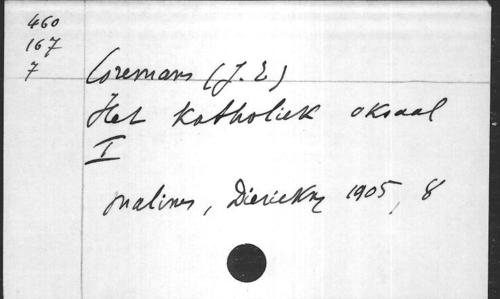 460
167
7
Coremans (J. E)
Het Katholiek oksaal
I
Malines, Dierickx 1905, 8